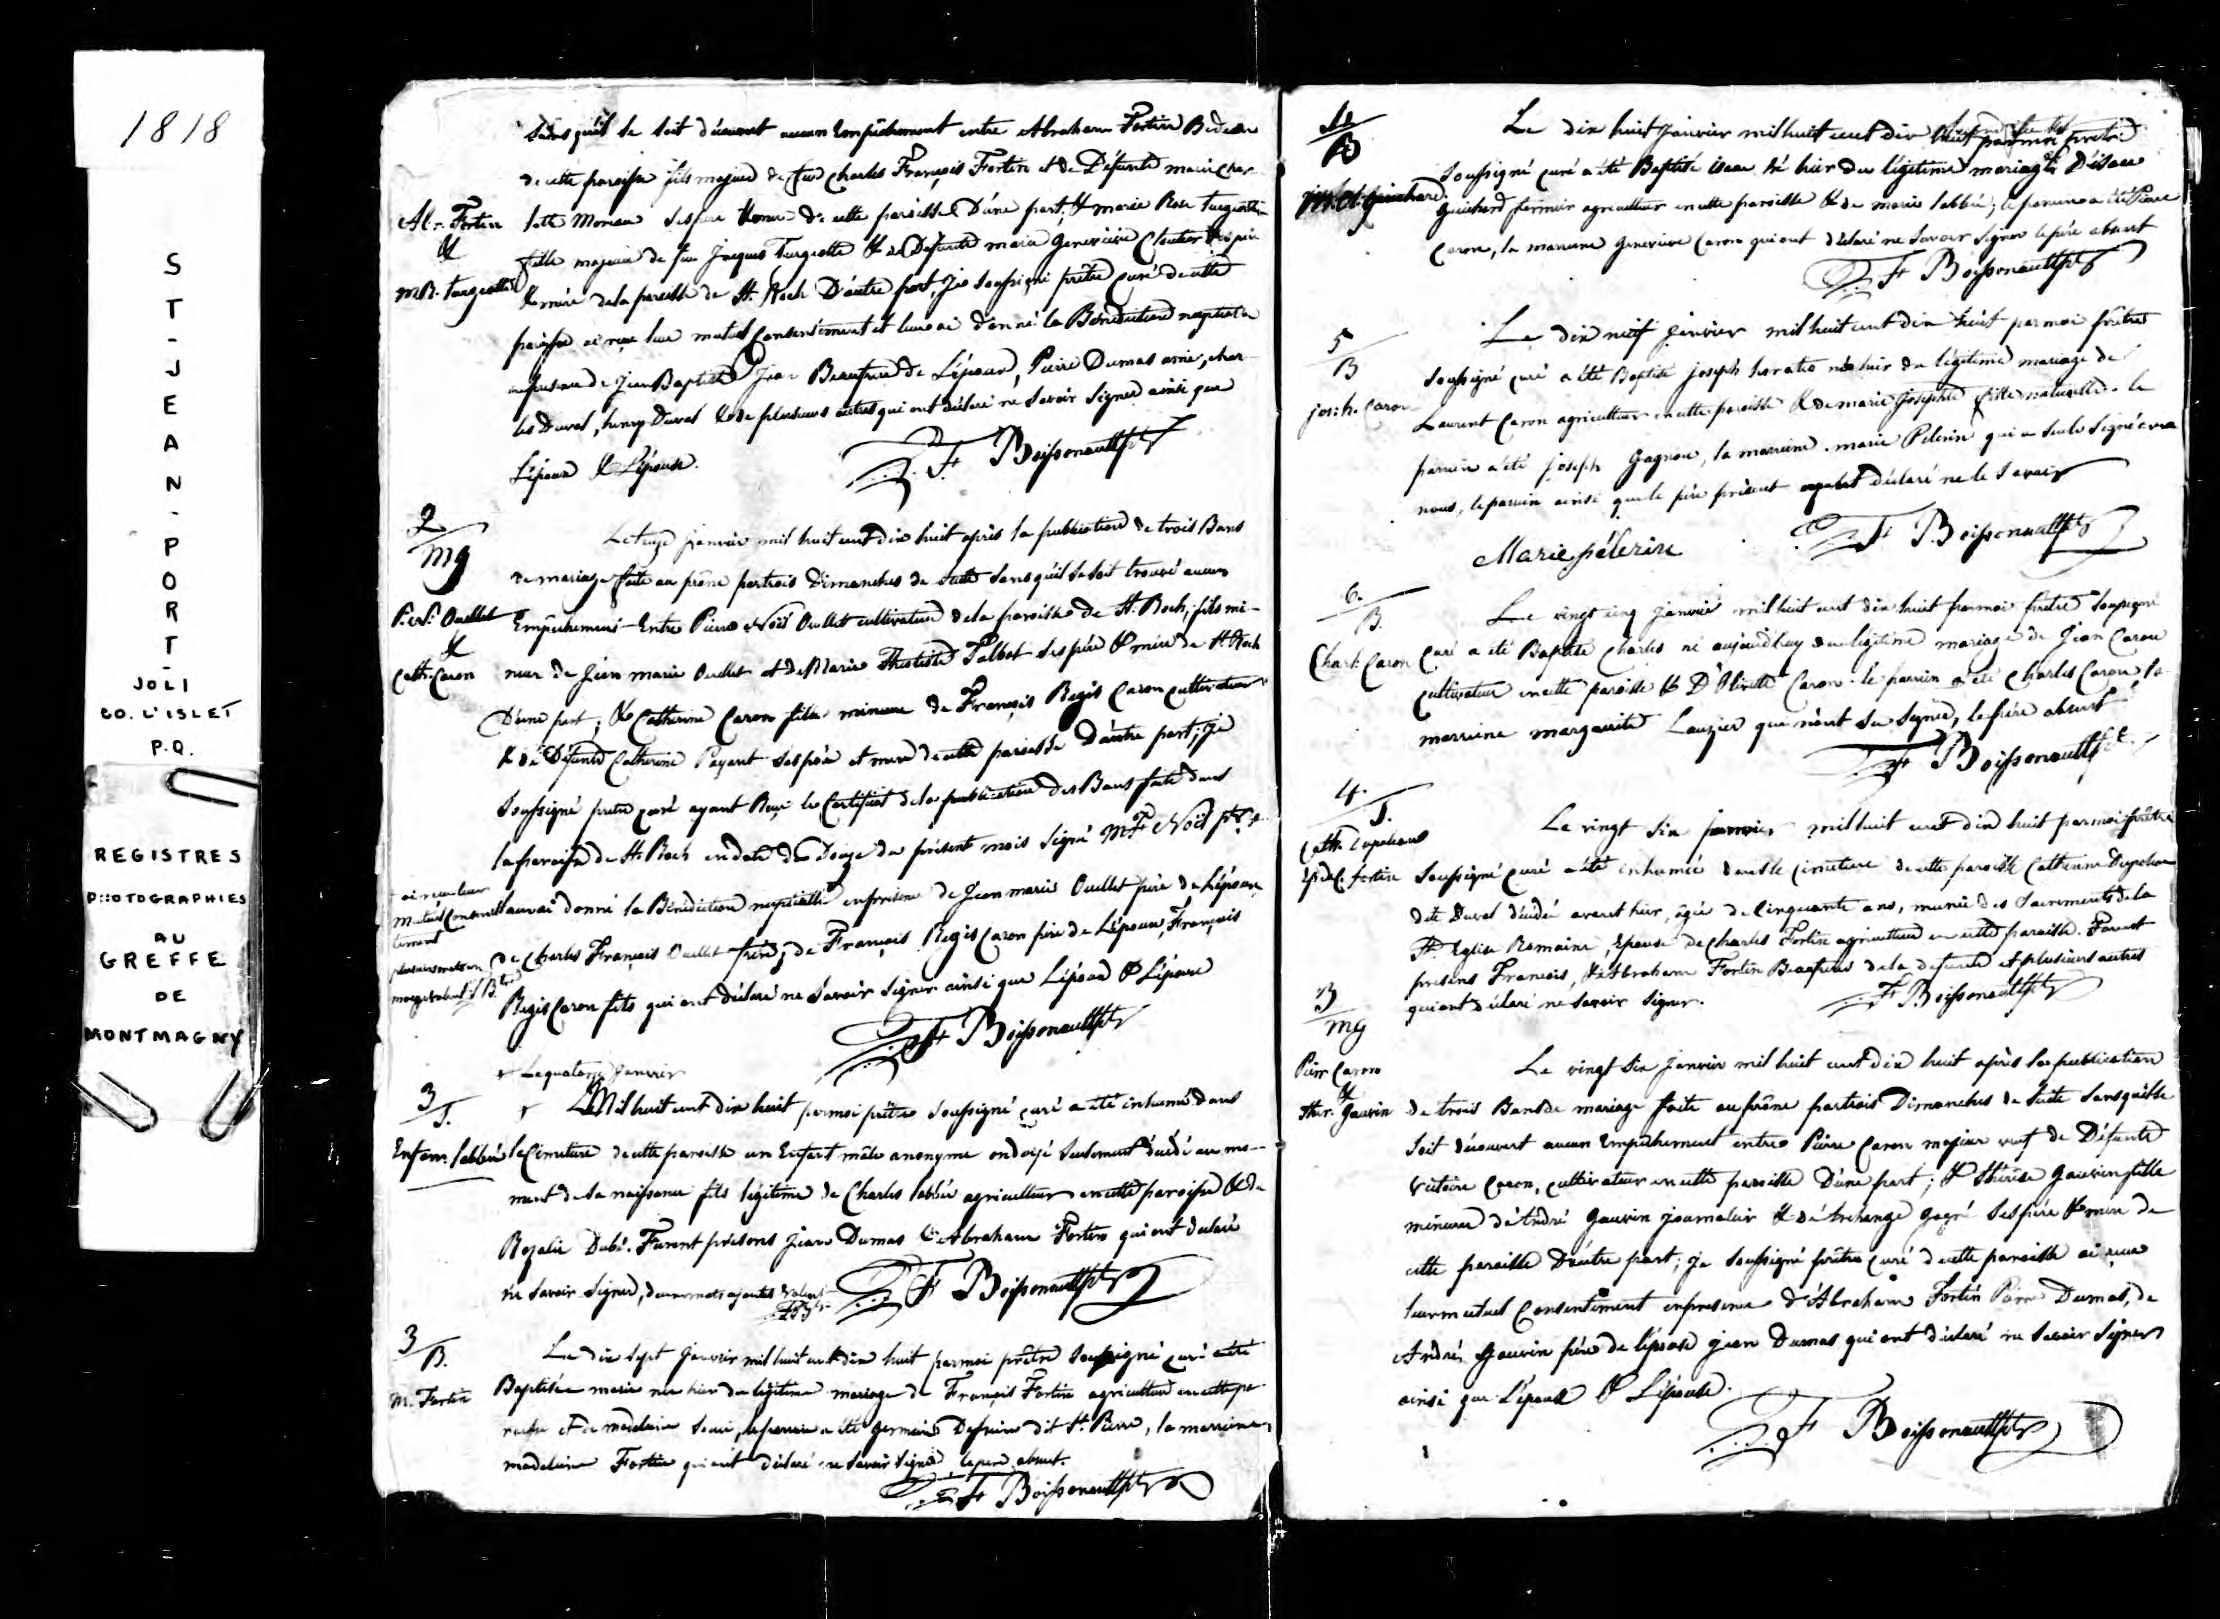 1818
ST-JEAN-PORT-
JOLI
CO. L'ISLET
P.Q.
REGISTRES
PHOTOGRAPHIES
AU
GREFFE
DE
MONTMAGNY
sans qu'il se soit découvert aucun Empêchement entre Abraham Fortin Bedeau
de cette paroisse fils majeur de feu Charles François Fortin et de Défunte marie Char-
Ab. Fortin
&
M.R. Turgeotte
lotte Moreau ses père & mere de cette paroisse D'une part; & marie Rose Turgeotte
fille majeure de feu Jacques Turgeotte & de Défunte marie Geneviève Cloutier ses père
& mère de la paroisse de St. Roch D'autre part, Je soussigné prêtre curé de cette
paroisse ai reçu leur mutuel Consentement et leur ai donné la Bénédiction nuptiale
en présence de Jean Baptiste Jean Beaufrere de L'époux, Pierre Dumas amie, Char-
les Duval, henry Duval & de plusieurs autres qui ont déclaré ne savoir signer ainsi que
L'époux & L'épouse.
F. Boissonnault ptr
2
mg
P. N. Ouellet
&
Cath. Caron
Le treize janvier mil huit cent dix huit après la publication de trois Bans
de mariage faite au prône par trois Dimanches de suite sans qu'il se soit trouvé aucun
Empêchement Entre Pierre Noël Ouellet cultivateur de la paroisse de St. Roch, fils mi-
neur de Jean marie Ouellet et de Marie Théotiste Talbot ses père & mère de St Roch
D'une part; & Catherine Caron fille mineure de François Regis Caron cultivateur
& de Défunte Catherine Payant ses père et mere de cette paroisse D'autre part; Je
Soussigné prêtre curé ayant Reçu le Certificat de la publication des Bans faite dans
la paroisse de St. Roch en date du Douze du présent mois signé Mr Noël ptre
+ ai reçu leur
mutuel Consentement
leur ai donné la Bénédiction nuptiale en présence de Jean marie Ouellet père de L'époux,
de Charles François Ouellet frère, de François Regis Caron père de L'épouse, François
Regis Caron fils qui ont déclaré ne savoir signer ainsi que L'époux & L'épouse
F. Boissonnault ptr
+ Le quatorze janvier
3
S.
Enfan. labbée
+ Mil huit cent dix huit par moi prêtre soussigné curé a été inhumé dans
le Cimetiere de cette paroisse un Enfant mâle anonyme ondoyé seulement décédé au mo-
ment de sa naissance fils légitime de Charles labbée agriculteur en cette paroisse & de
Rozalie Dubé. Furent présens Jean Dumas & Abraham Fortin qui ont déclaré
ne savoir signer, deux mots ajoutés valent
F. Boissonnault ptr
3
B.
M. Fortin
Le dix sept Janvier mil huit cent dix huit par moi prêtre soussigné curé a été
Baptisée marie née hier du légitime mariage de François Fortin agriculteur en cette pa-
roisse et de madelaine, le parrain a été germain dit St. Pierre, la marreine
madelaine Fortin qui ont déclaré ne savoir signer, le pere absent.
F. Boissonnault ptr
4
B
Guichard
Le dix huit Janvier mil huit cent dix huit par moi prêtre
soussigné curé a été Baptisé né hier du légitime mariage D'isaac
Guichard fermier agriculteur en cette paroisse & de marie labbée; le parrain a été Pierre
Caron, la marraine Geneviève Caron qui ont déclaré ne savoir signer le père absent
F. Boissonnault ptr
5
B
jos. h. Caron
Le dix neuf janvier mil huit cent dix huit par moi prêtre
soussigné curé a été Baptisé joseph horatio né hier du légitime mariage de
Laurent Caron agriculteur en cette paroisse & de marie josephte fille naturelle. le
parrain a été joseph Gagnon, la marreine marie Pelerin qui a seule signé avec
nous, le parrain ainsi que le père présent ayant déclaré ne le savoir
Marie pélerin
F. Boissonnault ptr
6.
B.
Charl. Caron
Le vingt cinq janvier mil huit cent dix huit par moi prêtre soussigné
Curé a été Baptisé Charles né aujourd'huy du légitime mariage de Jean Caron
Cultivateur en cette paroisse & D'Olivette Caron. le parrain a été Charles Caron, la
marreine margueritte Lauzier qui n'ont su signer, le père absent
F. Boissonnault ptr
4.
S.
Cath. Dupéhaus
ep. de C. fortin
Le vingt six janvier mil huit cent dix huit par moi prêtre
soussigné curé a été inhumée dans le Cimetiere de cette paroisse Catherine
dite Duval décédée avant hier, âgée de Cinquante ans, munie des Sacrements de la
Ste. Eglise Romaine, Epouse de Charles Fortin agriculteur en cette paroisse. Furent
presens François, & Abraham Fortin Beaufreres de la defunte et plusieurs autres
qui ont déclaré ne savoir signer.
F. Boissonnault ptr
3
mg
Pierr Caron
&
Ther. Gauvin
Le vingt six Janvier mil huit cent dix huit après la publication
de trois Bans de mariage faite au prône par trois Dimanches de suite sans qu'il se
soit découvert aucun Empêchement entre Pierre Caron majeur veuf de Défunte
Victoire Caron, cultivateur en cette paroisse D'une part; & Thérèse Gauvin fille
mineure d'André Gauvin journalier & d'Archange Gagné ses père & mere de
cette paroisse D'autre part; Je soussigné prêtre curé de cette paroisse ai reçu
leur mutuel Consentement en presence d'Abraham Fortin Pierre Dumas, de
André Gauvin père de l'épouse Jean Dumas qui ont déclaré ne savoir signer
ainsi que L'époux & L'épouse.
F. Boissonnault ptr